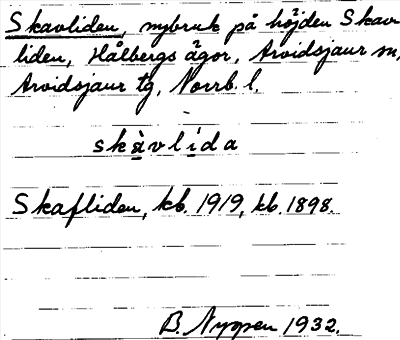 Skavliden, nybruk på höjden Skav-
liden, Hålbergs ägor, Arvidsjaur sn,
Arvidsjaur tg, Norrb. l.
skàvlída
Skafliden, kb. 1919, kb. 1898.
B. Nygren 1932.